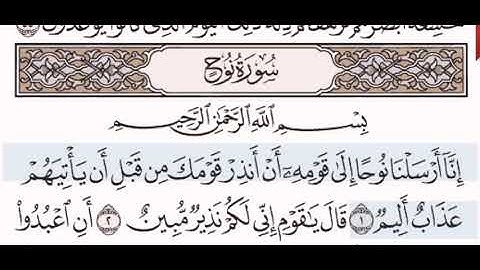 ذَٰلِكَ ٱلْيَوْمُ ٱلَّذِى كَانُوا۟ يُوعَدُونَ
سُورَةُ نُوحٍ
بِسْمِ ٱللَّهِ ٱلرَّحْمَٰنِ ٱلرَّحِيمِ
إِنَّآ أَرْسَلْنَا نُوحًا إِلَىٰ قَوْمِهِۦٓ أَنْ أَنذِرْ قَوْمَكَ مِن قَبْلِ أَن يَأْتِيَهُمْ
عَذَابٌ أَلِيمٌ ١ قَالَ يَٰقَوْمِ إِنِّى لَكُمْ نَذِيرٌ مُّبِينٌ ٢ أَنِ ٱعْبُدُوا۟